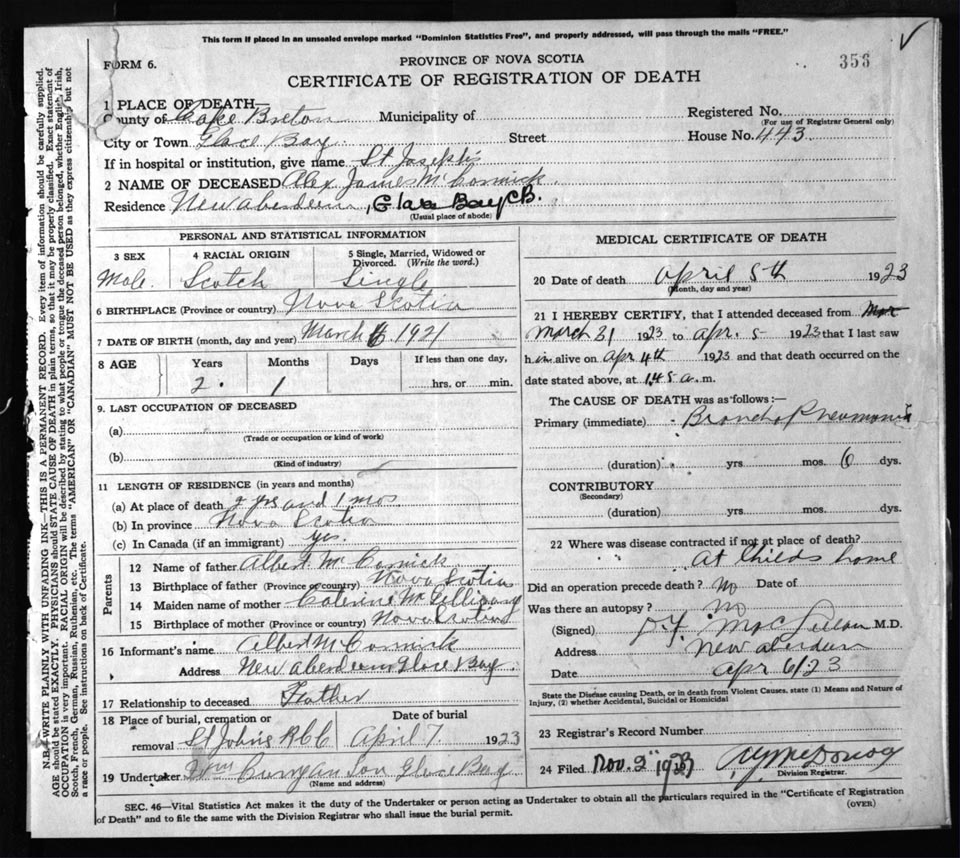 This form if placed in an unsealed envelope marked "Dominion Statistics Free", and properly addressed, will pass through the mails "FREE."
FORM 6.
PROVINCE OF NOVA SCOTIA
358
CERTIFICATE OF REGISTRATION OF DEATH
1 PLACE OF DEATH—
County of Cape Breton Municipality of Registered No.
(For use of Registrar General only)
City or Town Glace Bay Street House No. 443
If in hospital or institution, give name St Joseph's
2 NAME OF DECEASED Alex James McCormick
Residence New Aberdeen, Glace Bay C.B.
(Usual place of abode)
PERSONAL AND STATISTICAL INFORMATION
3 SEX 4 RACIAL ORIGIN 5 Single, Married, Widowed or Divorced. (Write the word.)
Male. Scotch Single
6 BIRTHPLACE (Province or country) Nova Scotia
7 DATE OF BIRTH (month, day and year) March 1921
8 AGE Years Months Days If less than one day,
2 1 hrs. or min.
9. LAST OCCUPATION OF DECEASED
(a)
(Trade or occupation or kind of work)
(b)
(Kind of industry)
11 LENGTH OF RESIDENCE (in years and months)
(a) At place of death 2 yrs and 1 mos
(b) In province Nova Scotia
(c) In Canada (if an immigrant) yes.
Parents
12 Name of father Albert McCormick
13 Birthplace of father (Province or country) Nova Scotia
14 Maiden name of mother
15 Birthplace of mother (Province or country) Nova Scotia
16 Informant's name Albert McCormick
Address New Aberdeen Glace Bay.
17 Relationship to deceased Father
18 Place of burial, cremation or removal St Johns R C C
Date of burial April 7 1923
19 Undertaker Wm Curry an Son Glace Bay
(Name and address)
MEDICAL CERTIFICATE OF DEATH
20 Date of death April 5th 1923
(Month, day and year)
21 I HEREBY CERTIFY, that I attended deceased from
March 31 1923 to Apr. 5 1923 that I last saw
him alive on Apr 4th 1923 and that death occurred on the
date stated above, at 1.45 a.m.
The CAUSE OF DEATH was as follows:—
Primary (immediate) Broncho Pneumonia
(duration) yrs mos. 6 dys.
CONTRIBUTORY
(Secondary)
(duration) yrs. mos. dys.
22 Where was disease contracted if not at place of death?
At Childs home
Did an operation precede death? No Date of
Was there an autopsy? No
(Signed) M.D.
Address New Aberdeen
Date Apr 6/23
State the Disease causing Death, or in death from Violent Causes, state (1) Means and Nature of
Injury, (2) whether Accidental, Suicidal or Homicidal
23 Registrar's Record Number
24 Filed Nov. 2" 1923
Division Registrar.
SEC. 46—Vital Statistics Act makes it the duty of the Undertaker or person acting as Undertaker to obtain all the particulars required in the "Certificate of Registration
(OVER)
of Death" and to file the same with the Division Registrar who shall issue the burial permit.
N.B.—WRITE PLAINLY WITH UNFADING INK—THIS IS A PERMANENT RECORD. Every item of information should be carefully supplied.
AGE should be stated EXACTLY. PHYSICIANS should STATE CAUSE OF DEATH in plain terms, so that it may be properly classified. Exact statement of
OCCUPATION is very important. RACIAL ORIGIN will be described by stating to what people or tongue the deceased person belonged, whether English, Irish,
Scotch, French, German, Russian, Ruthenian, etc. The terms "AMERICAN" OR "CANADIAN" MUST NOT BE USED as they express citizenship but not
a race or people. See instructions on back of Certificate.